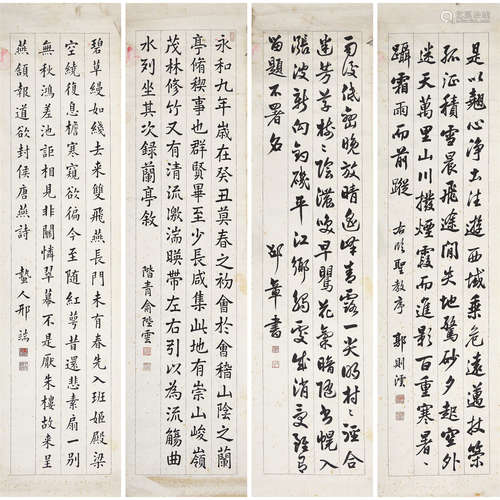 是以翹心净土往遊西域乘危遠邁杖策
孤征積雪晨飛途間失地驚砂夕起空外
迷天萬里山川撥煙霞而進影百重寒暑
躡霜雨而前蹤 右臨聖教序 郭則澐
雨後低密晚放晴遠峰青露一尖明村村徑合
迷芳草樹樹陰濃喚早鶯花氣暗隨書幌入
漲波新向釣磯平江鄉成消受
留題不署名 邵章書
永和九年歲在癸丑莫春之初會於會稽山陰之蘭
亭脩稧事也群賢畢至少長咸集此地有崇山峻嶺
茂林修竹又有清流激湍暎帶左右引以為流觴曲
水列坐其次錄蘭亭敘 階青俞陛雲
碧草縵如綫去來雙飛燕長門未有春先入班姬殿梁
空繞復息檐寒窺欲徧今至隨紅萼昔還悲素扇一別
無秋鴻差池詎相見非關憐翠幕不是厭朱樓故來呈
燕頷報道欲封侯唐燕詩 蟄人邢端